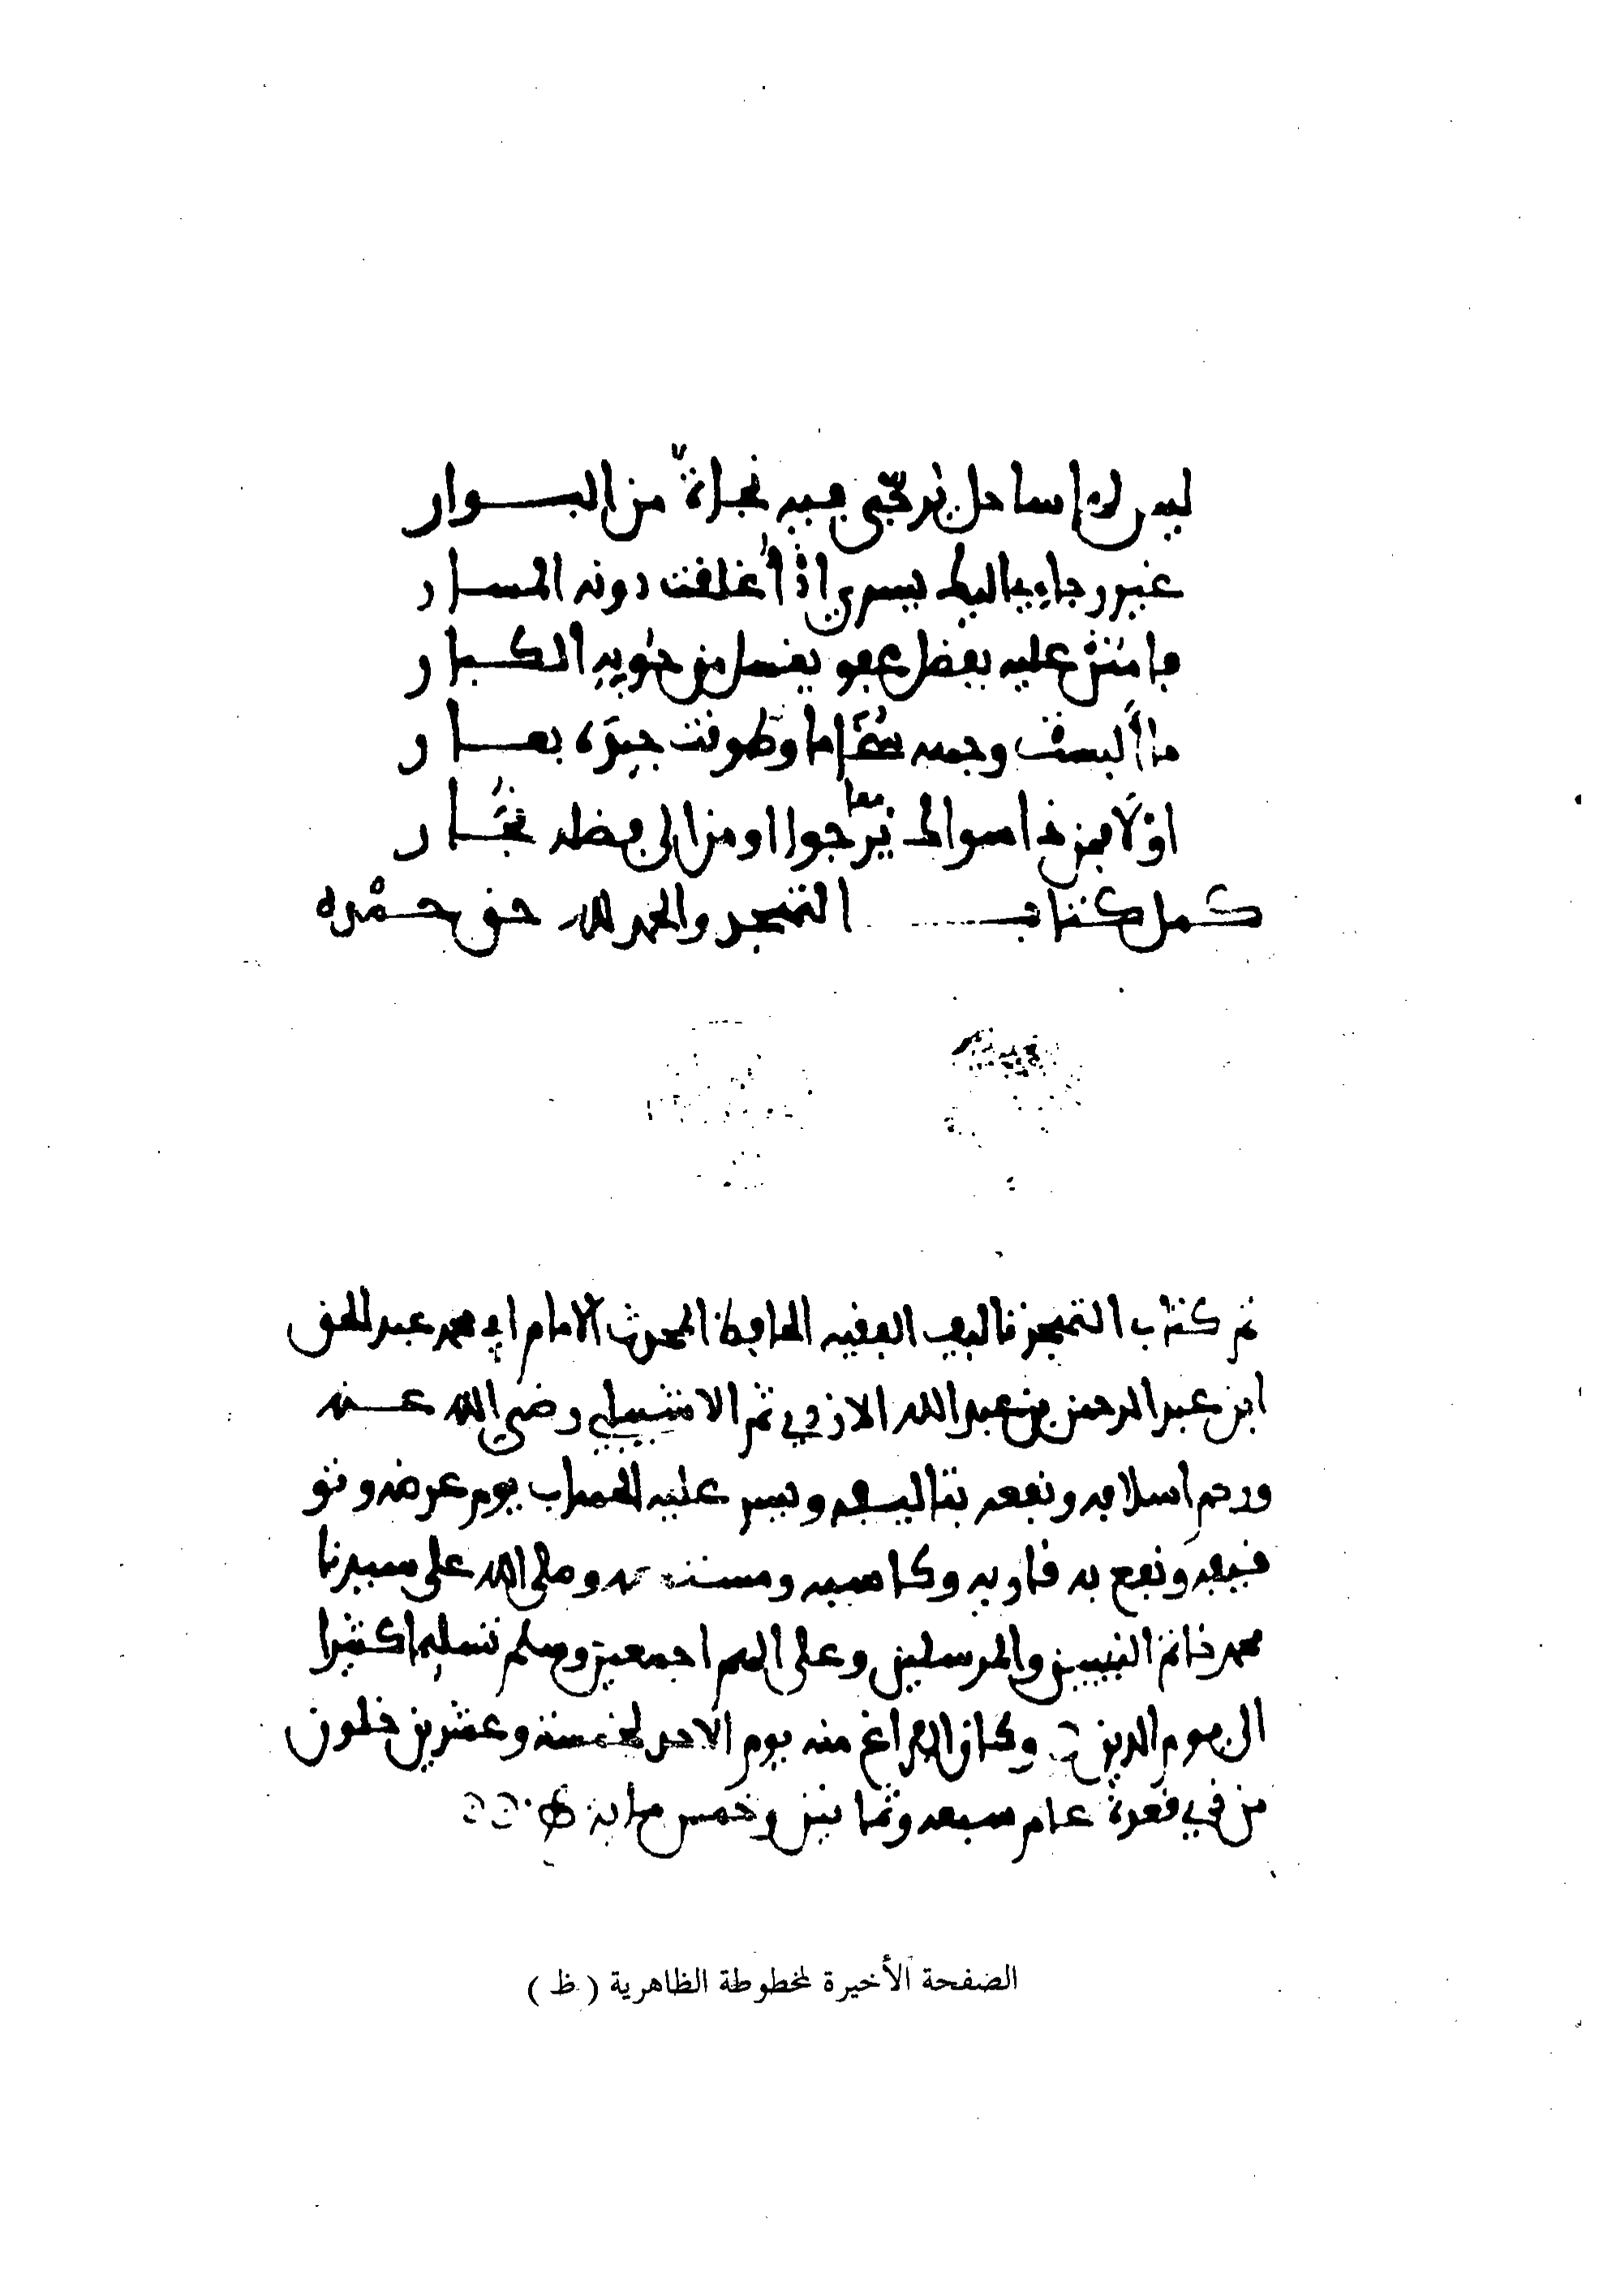 ليس له ساحل يرجى فيه نجاة من البوار
غير رجاء إليك يسري إذا أغلقت دونه المسار
فامنن عليه بفضل عفو يغسل من حوبه الكبار
ما ألبست وجهه وطوقت جيده بعار
أو لا فمن ذا سواك يرجوا او من الى فضله
كمل كتاب التهجد والحمد لله حق حمده
تم كتاب التهجد تاليف الفقيه الحافظ المحدث الامام ابي محمد عبد الحق
ابن عبد الرحمن بن عبد الله الازدي ثم الاشبيلي رضي الله عنه
ورحم اسلافه ونفعه بتاليفه ويسر عليه الحساب يوم عرضه وتو
قيفه ونفع به قاريه وكاسبه وصلى الله على سيدنا
محمد خاتم النبيين والمرسلين وعلى الهم اجمعين وسلم تسليما كثيرا
الى يوم الدين وكان الفراغ منه يوم الاحد لخمسة وعشرين خلون
من ذي قعدة عام سبعه وثمانين وخمس ماية
الصفحة الأخيرة لمخطوطة الظاهرية ( ظ )